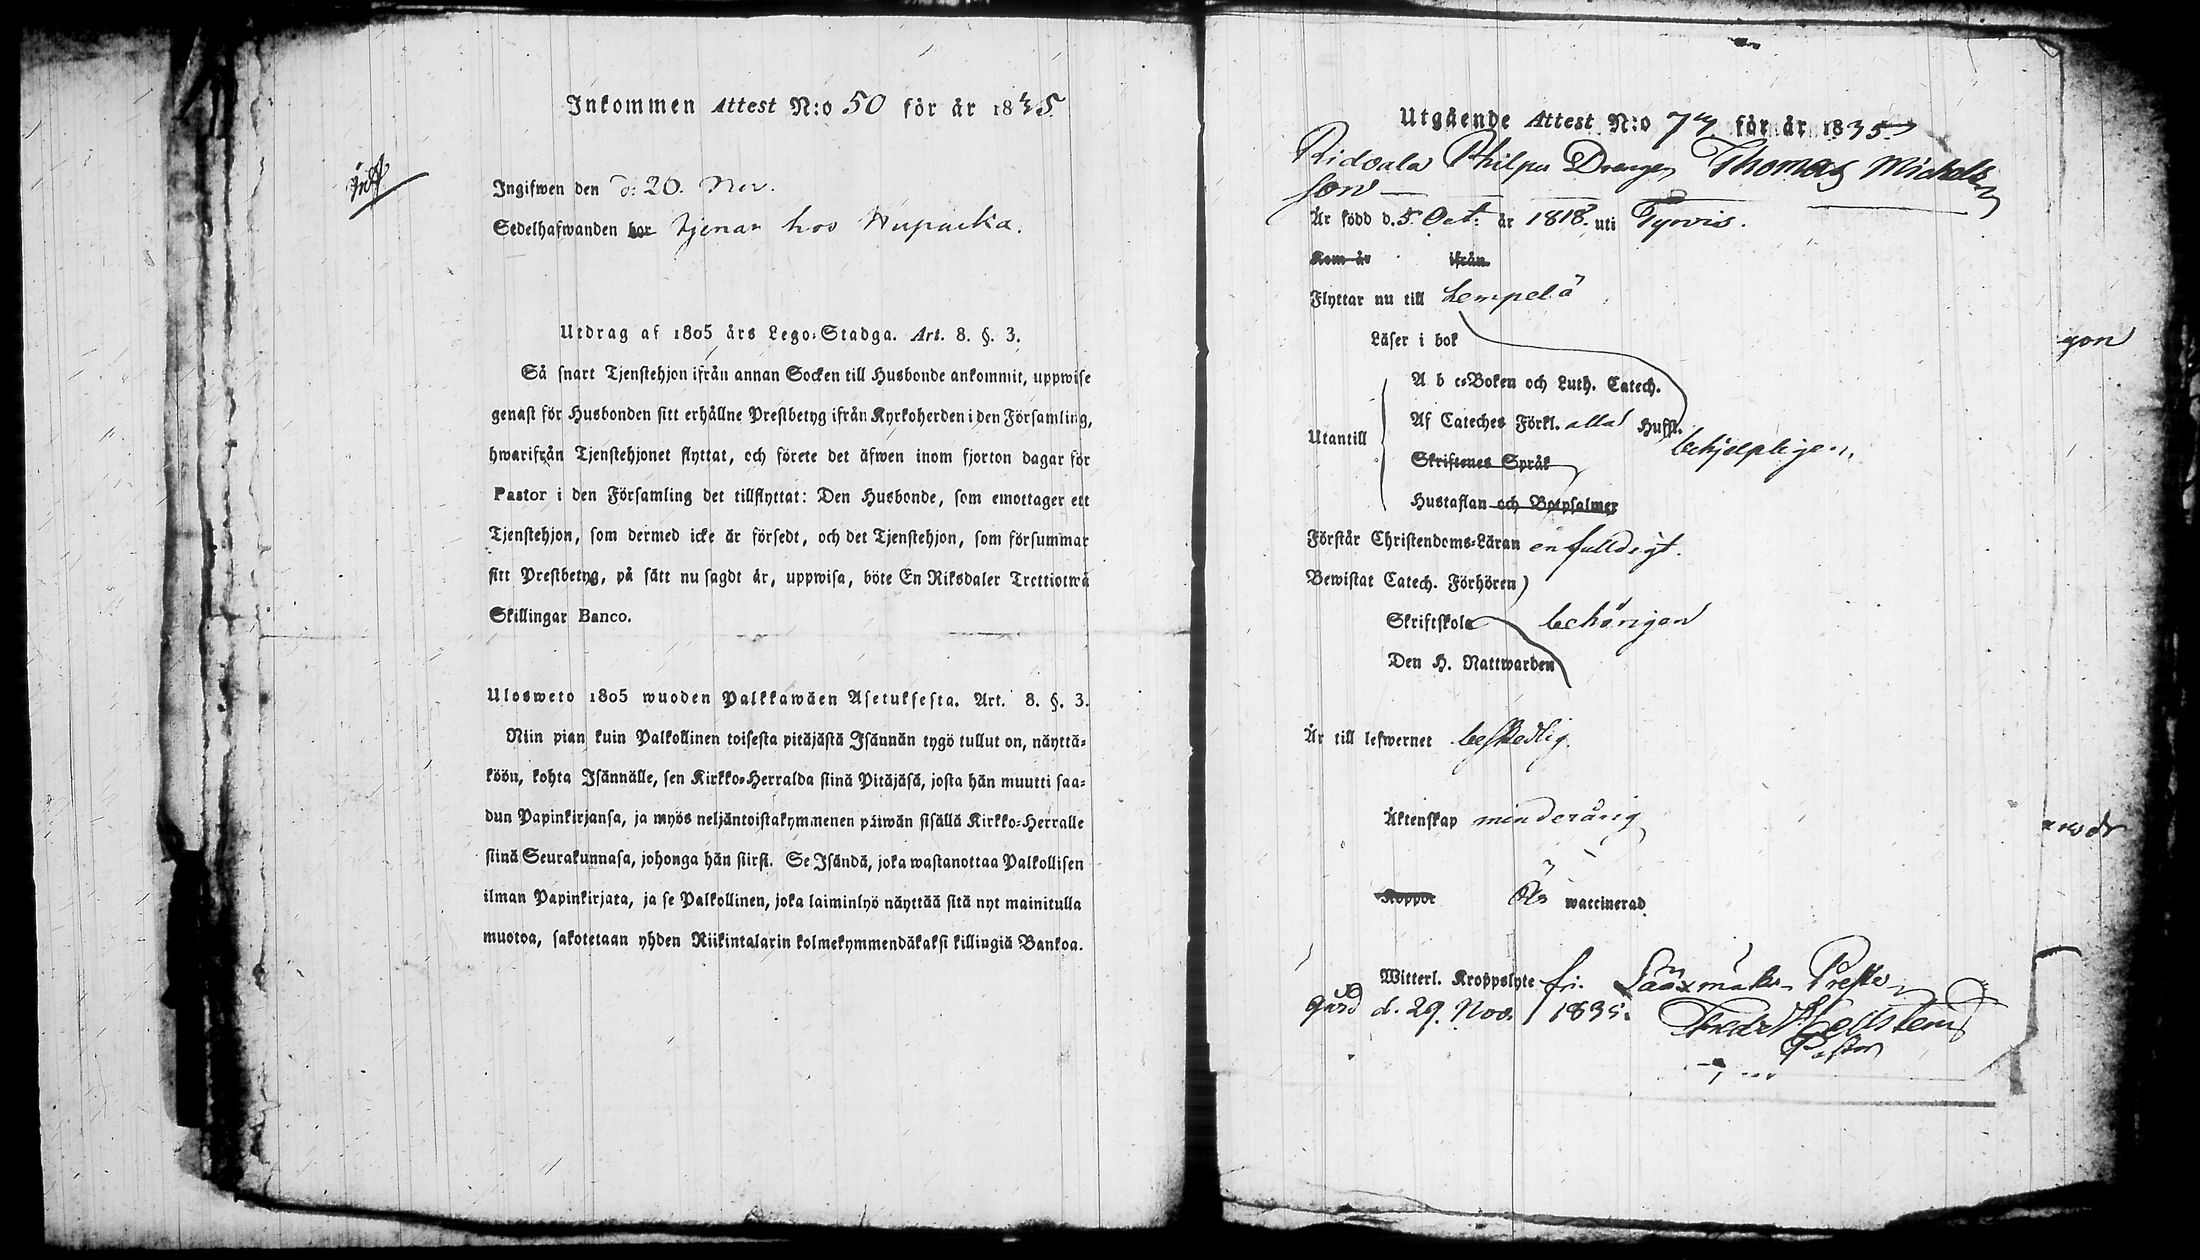 Inkommen Attest N:o 50 för år 1835.
Ingifwen den d: 20. Nov.
Sedelhafwanden bor tjenar hos
Utdrag af 1805 års Lego-Stadga. Art. 8. §. 3.
Så snart Tjenstehjon ifrån annan Socken till Husbonde ankommit, uppwise
genast för Husbonden sitt erhållne Prestbetyg ifrån Kyrkoherden i den Församling,
hwarifrån Tjenstehjonet flyttat, och förete det äfwen inom fjorton dagar för
Pastor i den Församling det tillflyttat: Den Husbonde, som emottager ett
Tjenstehjon, som dermed icke är försedt, och det Tjenstehjon, som försummar
sitt Prestbetyg, på sätt nu sagdt är, uppwisa, böte En Riksdaler Trettiotwå
Skillingar Banco.
Ulosweto 1805 wuoden Palkkawäen Asetuksesta. Art. 8. §. 3.
Niin pian kuin Palkollinen toisesta pitäjästä Isännän tygö tullut on, näyttä-
köön, kohta Isännälle, sen Kirkko-Herralda siinä Pitäjäsä, josta hän muutti saa-
dun Papinkirjansa, ja myös neljäntoistakymmenen päiwän sisällä Kirkko-Herralle
siinä Seurakunnasa, johonga hän siirsi. Se Isändä, joka wastanottaa Palkollisen
ilman Papinkirjata, ja se Palkollinen, joka laiminlyö näyttää sitä nyt mainitulla
muotoa, sakotetaan yhden Riikintalarin kolmekymmendäkaksi killingiä Bankoa.
Utgående Attest N:o för år 1835.
Ridvala Philpu Drengen Thomas Michels
son
Är född d. 5. Oct. år 1818. uti Tyrvis.
Kom år ifrån
Flyttar nu till Lempelä
Läser i bok
A b c-Boken och Luth. Catech.
Af Cateches Förkl. alla Hufst.
Utantill
behjelpligen,
Skriftenes Språk
Hustaflan och Botpsalmer
Förstår Christendoms-Läran enfalldigt.
Bewistat Catech. Förhören
Skriftskola behörigen
Den H. Nattwarden
Är till lefwernet beskedlig.
Äktenskap minderårig
Koppor Är waccinerad
Witterl. Kroppslyte fri. Sääxmäki Preste
gård d. 29. Nov. 1835. Fredr Hellsten
Pastor
gon